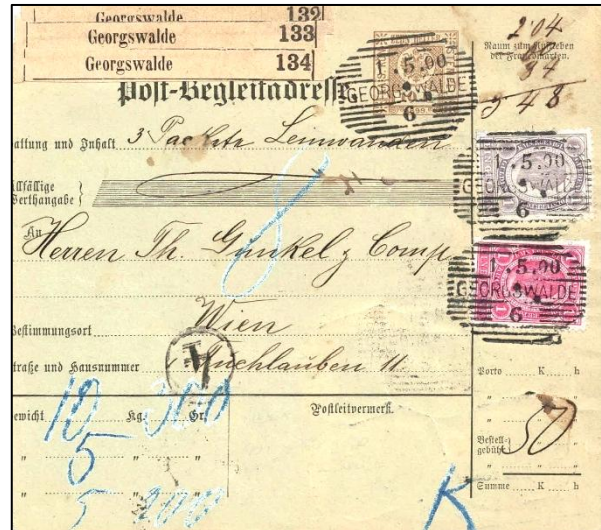 Georgswalde 132
Georgswalde 133
Georgswalde 134
2·04
Raum zum Aufkleben
der Frankomarken.
34
48
Post-Begleitadresse
1.5.00
GEORGSWALDE
6
attung und Inhalt 3 Packete Leinwanden
1.5.00
GEORGSWALDE
6
llfällige
Werthangabe
An
Herren Th. Gunkel & Comp
1.5.00
GEORGSWALDE
6
Wien
Bestimmungsort
traße und Hausnummer Tuchlauben 11.
Porto K h
ewicht Kg. Gr.
Postleitvermerk.
10
5
5
Bestell-
gebühr
50
Summe K h
K